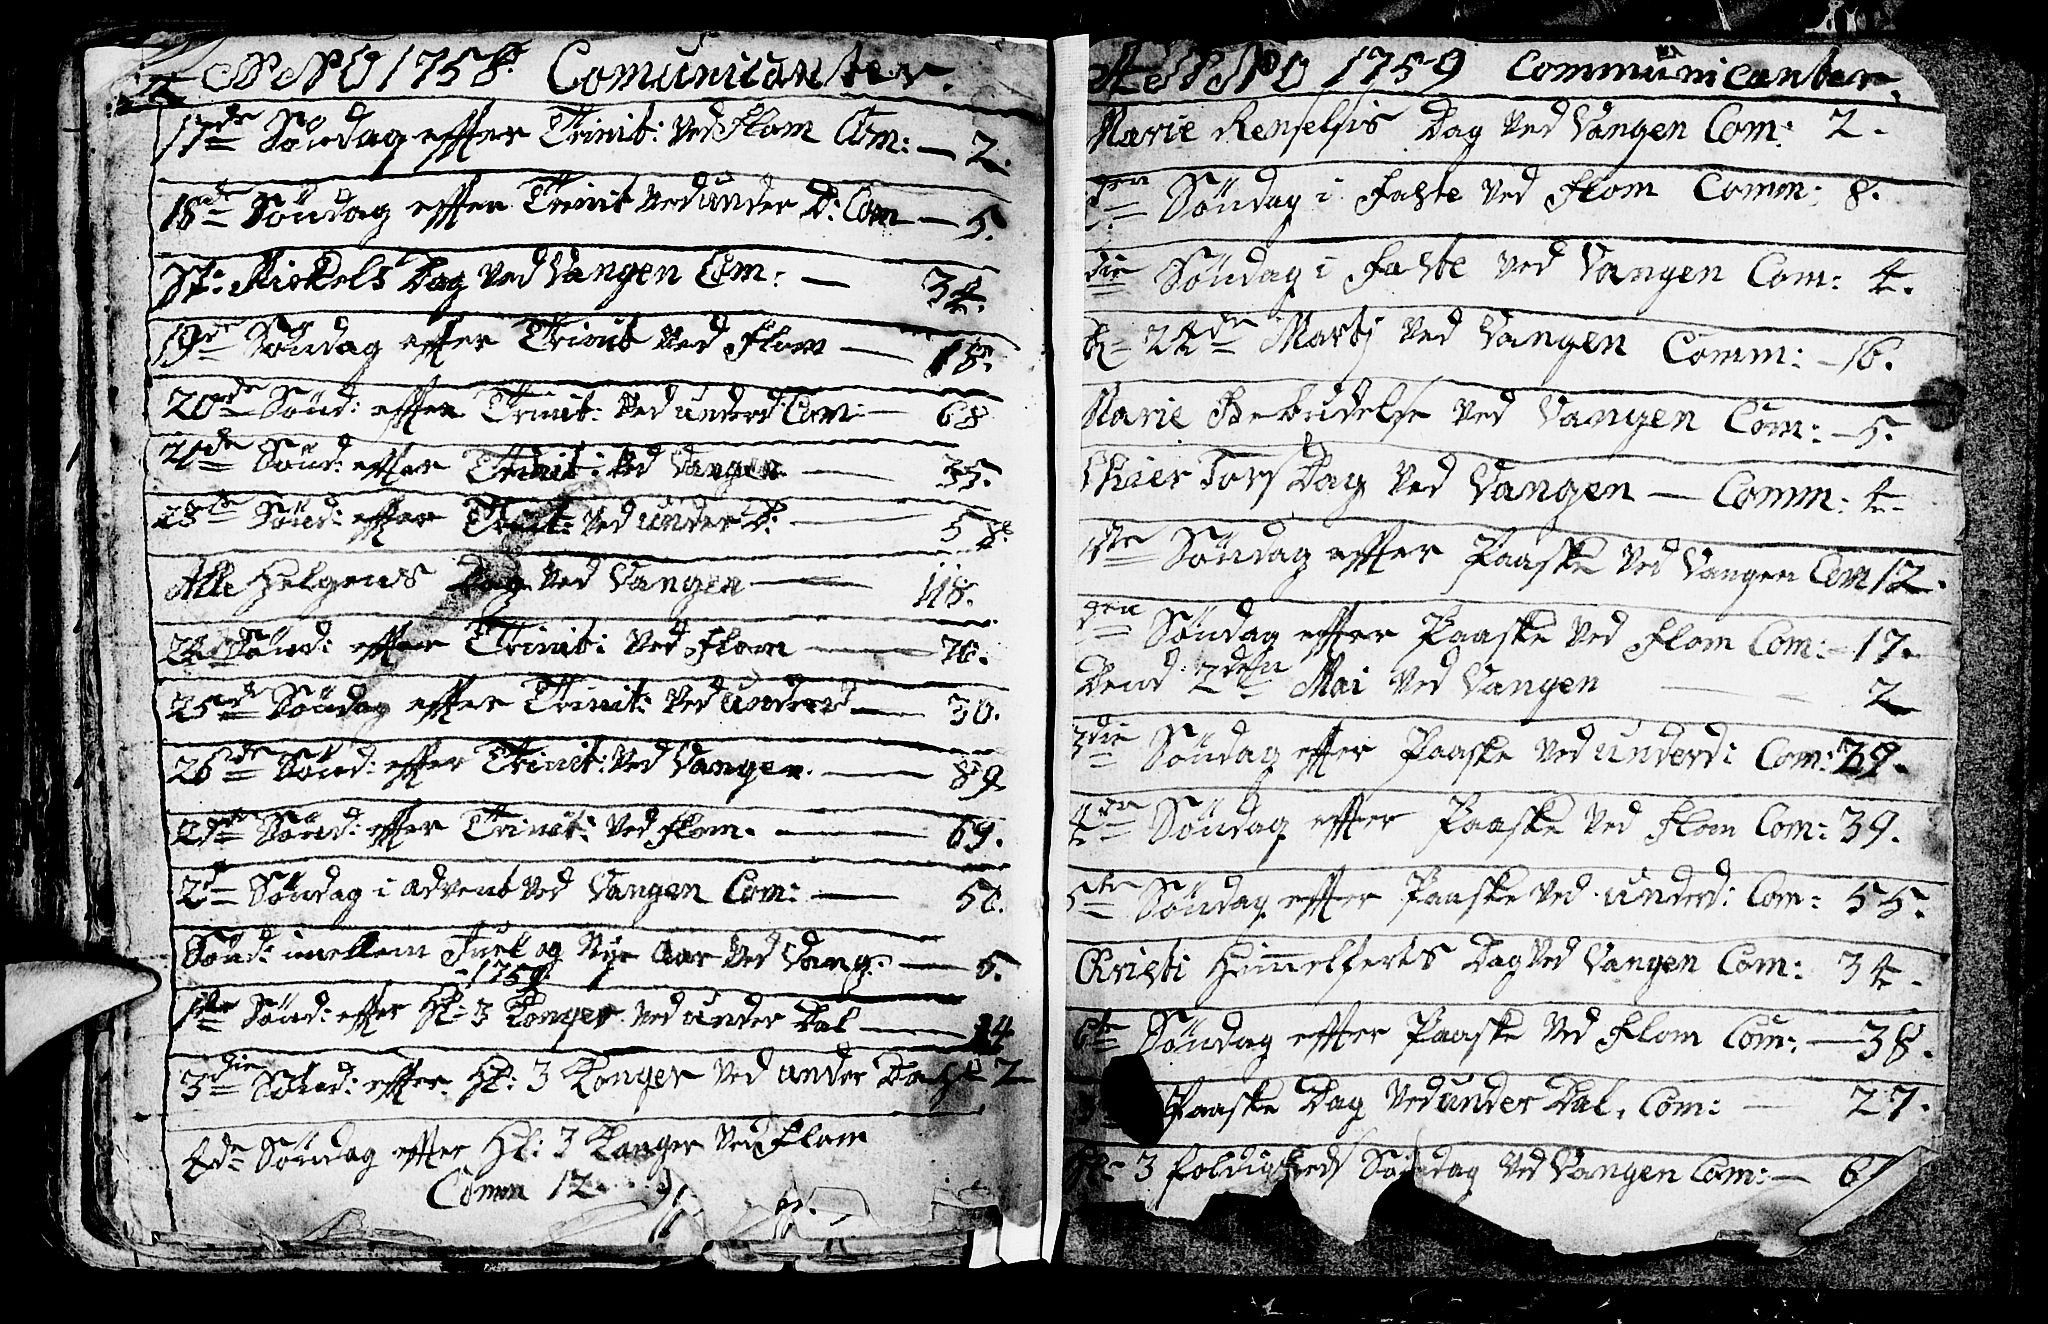 ANNO 1758. Comunicanter.
17de Søndag effter Trinit: Ved Flom Com: — 2.
18de Søndag effter Trinit Ved under D: Com — 5.
St: Mickels Dag Ved Vangen Com: — 34.
19de Søndag effter Trinit Ved Flom — 18.
20de Sønd: effter Trinit: Ved underd Com — 68
21de Sønd: effter Trinit: Ved Vangen — 35.
23de Sønd: effter Trinit: Ved under D: — 58.
Alle Helgens Dag Ved Vangen — 118.
24de Sønd: effter Trinit: Ved Flom — 76.
25de Søndag effter Trinit: Ved underd — 30.
26de Sønd: effter Trinit: Ved Vangen. — 89
Sønd: effter Trinit: Ved Flom. — 69.
2den Søndag i Advent Ved Vangen Com: — 50.
Sønd: imellem Juel og Nye Aar Ved Vang: — 5.
1759
1ste Sønd: effter Hl: 3 Konger Ved under Dal — 14
3die Sønd: effter Hl: 3 Konger Ved under Dahl 2
4de Søndag effter Hl: 3 Konger Ved Flom
Comm 12.
ANNO 1759 Communicanter.
Marie Renselsis Dag Ved Vangen Com: 2.
Søndag i Faste Ved Flom Comm: 8.
die Søndag i Faste Ved Vangen Com: 4.
d= 24de Martj Ved Vangen Comm: — 16.
Marie Bebudelse Ved Vangen Com: — 5.
Skier Tors Dag Ved Vangen — Comm: 4.
1ste Søndag effter Paaske Ved Vangen Com 12.
2den Søndag effter Paaske Ved Flom Com: — 17.
Dend 2den Mai Ved Vangen — 2
3die Søndag effter Paaske Ved underd: Com: 39.
4de Søndag effter Paaske Ved Flom Com: 39.
5te Søndag effter Paaske Ved underd: Com: 55.
Christi Himmelferts Dag Ved Vangen Com: 34.
6te Søndag effter Paaske Ved Flom Com: — 38.
Paaske Dag Ved under Dal, Com: — 27.
Hl: 3 foldigheds Søndag Ved Vangen Com: — 6